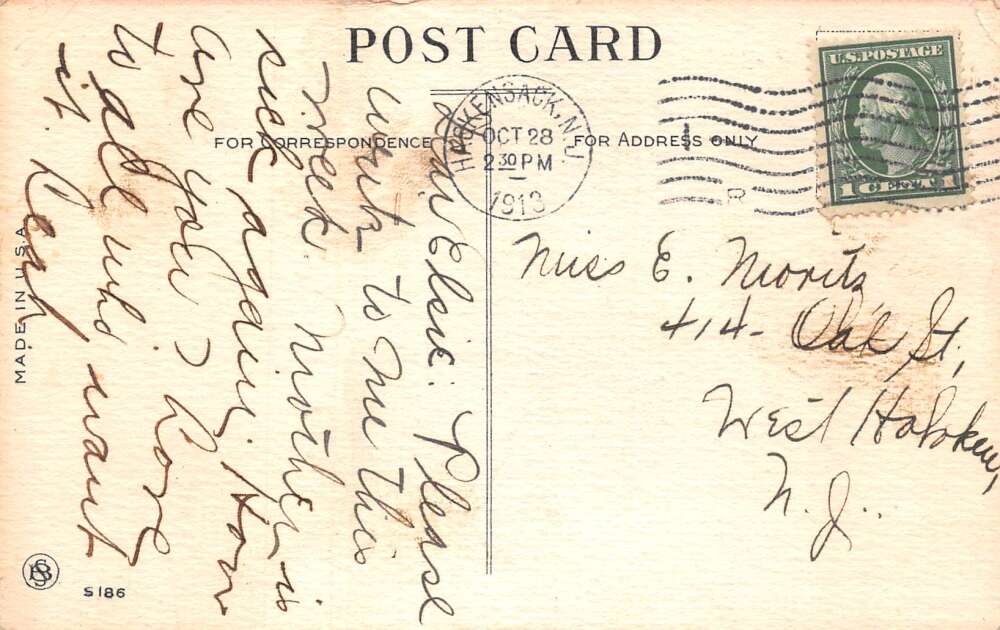 POST CARD
FOR CORRESPONDENCE
FOR ADDRESS ONLY
HACKENSACK, N.J.
OCT 28
2 30 PM
1913
U.S. POSTAGE
1 CENT 1
R
Dear Elsie: Please
write to me this
week. Mother is
sick again. How
are you? Love
to all who want
it. Pearl
Miss E. Moritz
414 Oak St.,
West Hoboken,
N. J.
MADE IN U.S.A.
S186